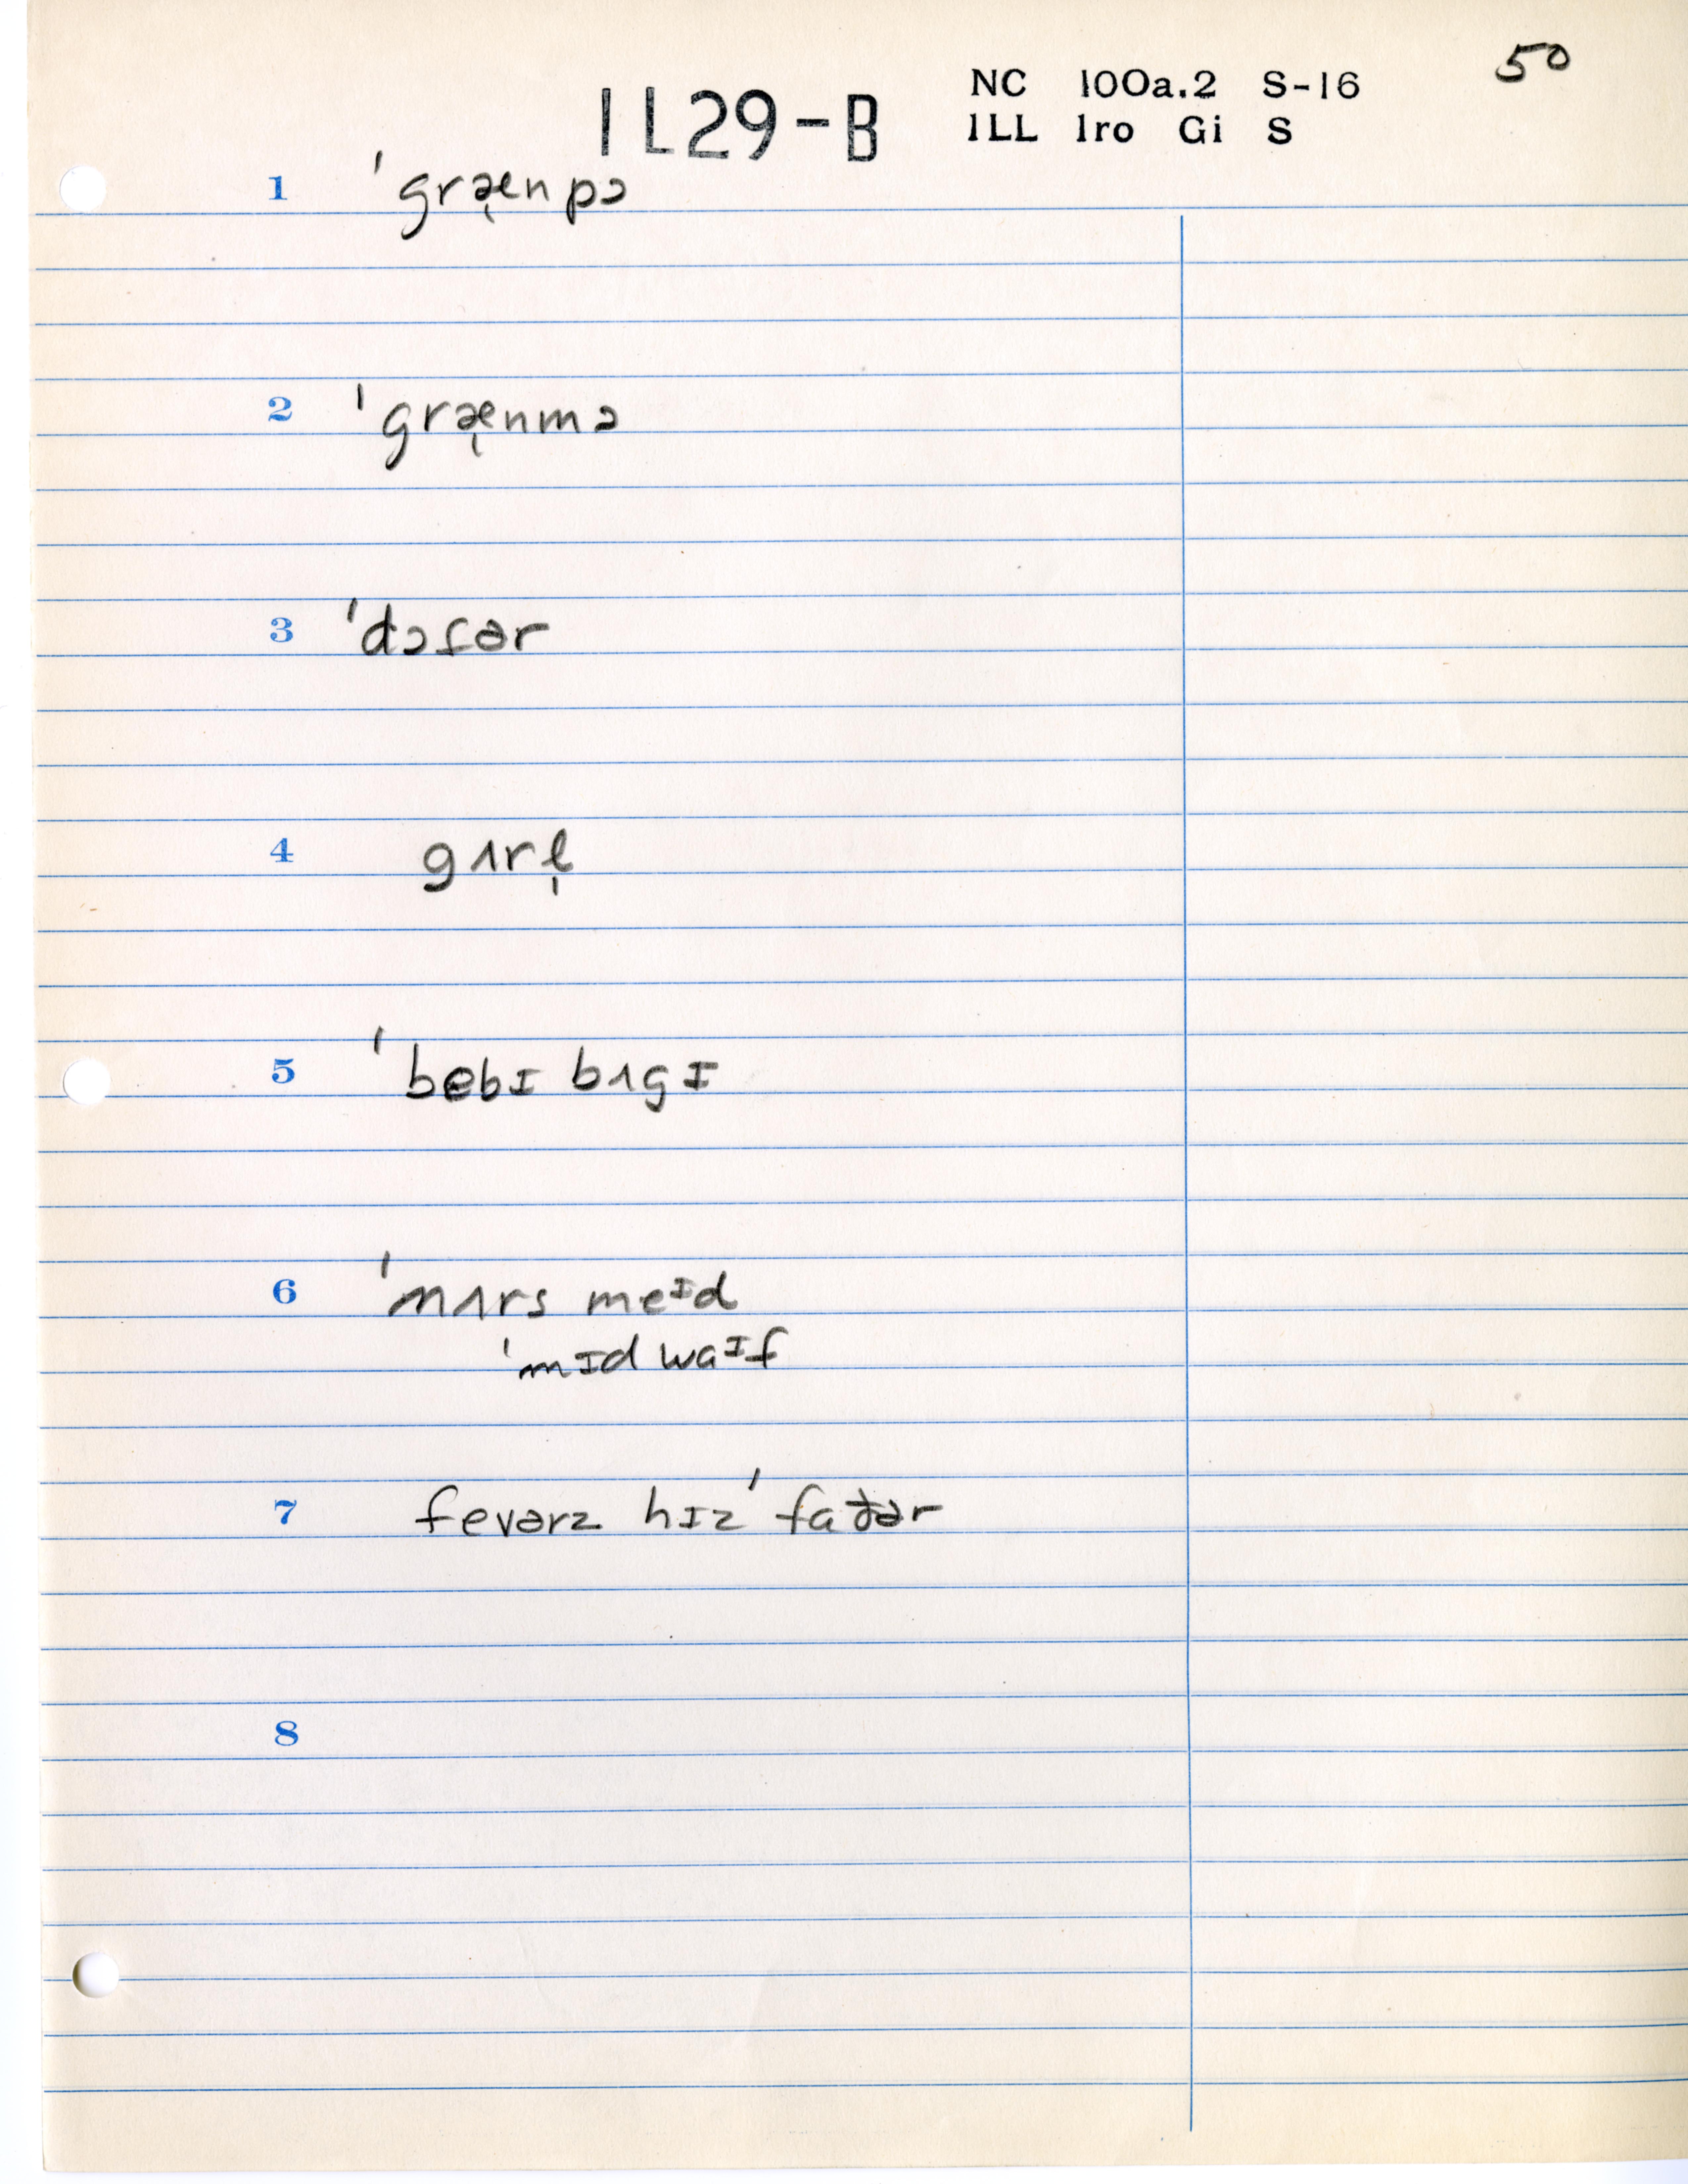 50
NC 100a.2 S-16
1L29-B
ILL Iro Gi S
1 ˈgræ̩npɔ
2 ˈgræ̩nmɔ
3 ˈdɔtər
4 gʌrl̩
5 ˈbebɪ bʌgɪ
6 ˈnʌrs meɪd
ˈmɪd waɪf
7 fevərz hɪz ˈfaðər
8